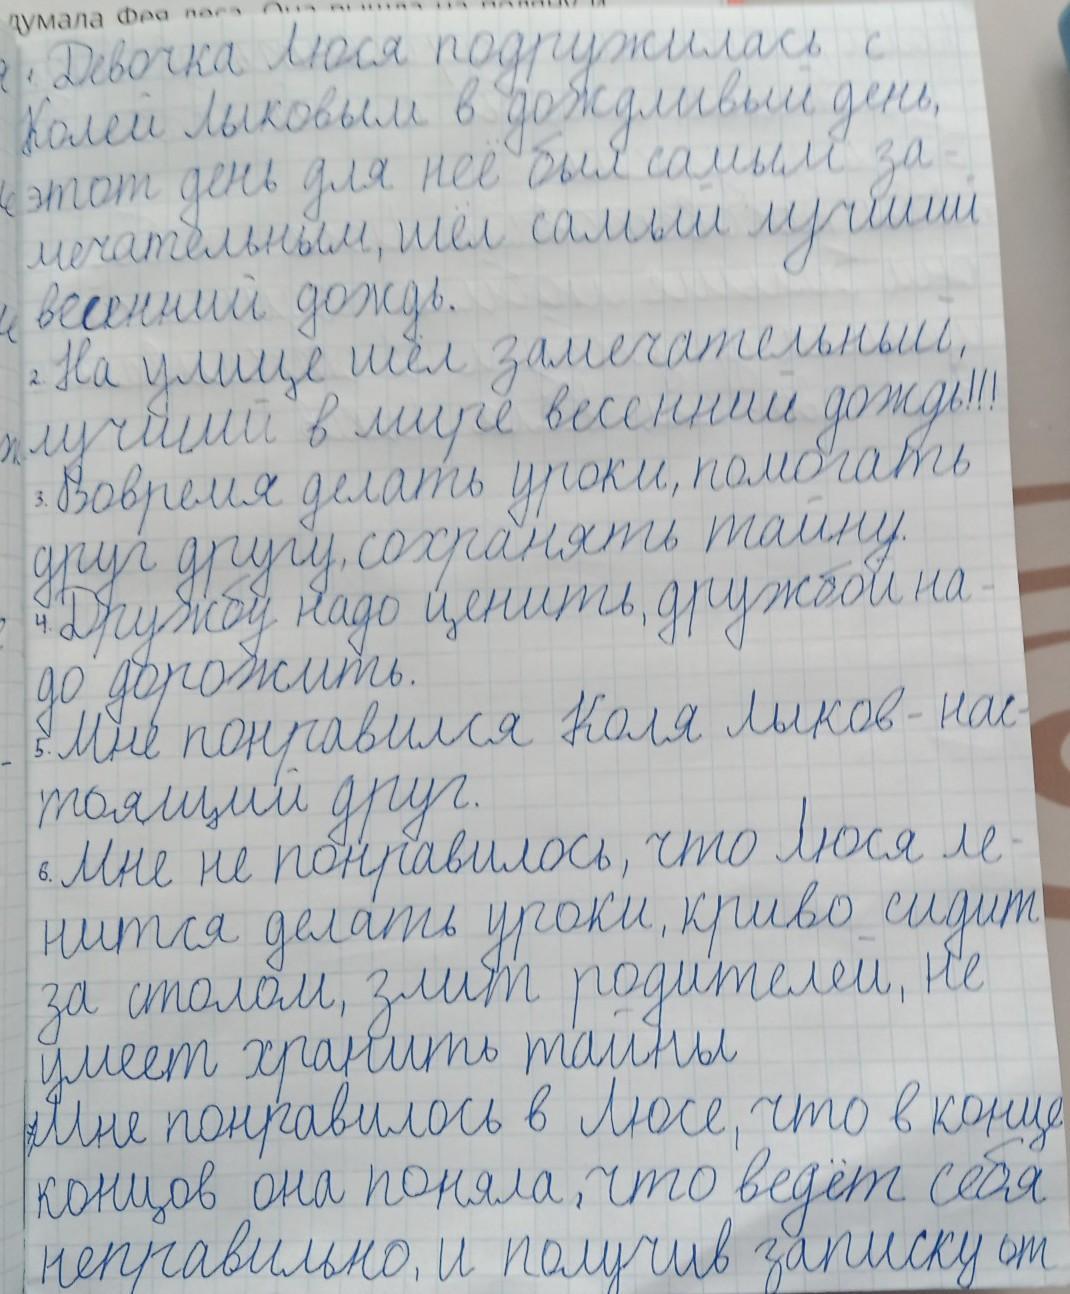 думала Фея леса. Она вышла на поляну и
1. Девочка Люся подружилась с
Колей Лыковым в дождливый день,
этот день для неё был самым за-
мечательным, шёл самый лучший
весенний дождь.
2. На улице шёл замечательный,
лучший в мире весенний дождь!!!
3. Вовремя делать уроки, помогать
друг другу, сохранять тайну.
4. Дружбу надо ценить, дружбой на-
до дорожить.
5. Мне понравился Коля Лыков - нас-
тоящий друг.
6. Мне не понравилось, что Люся ле-
нится делать уроки, криво сидит
за столом, злит родителей, не
умеет хранить тайны
7. Мне понравилось в Люсе, что в конце
концов она поняла, что ведёт себя
неправильно, и получив записку от